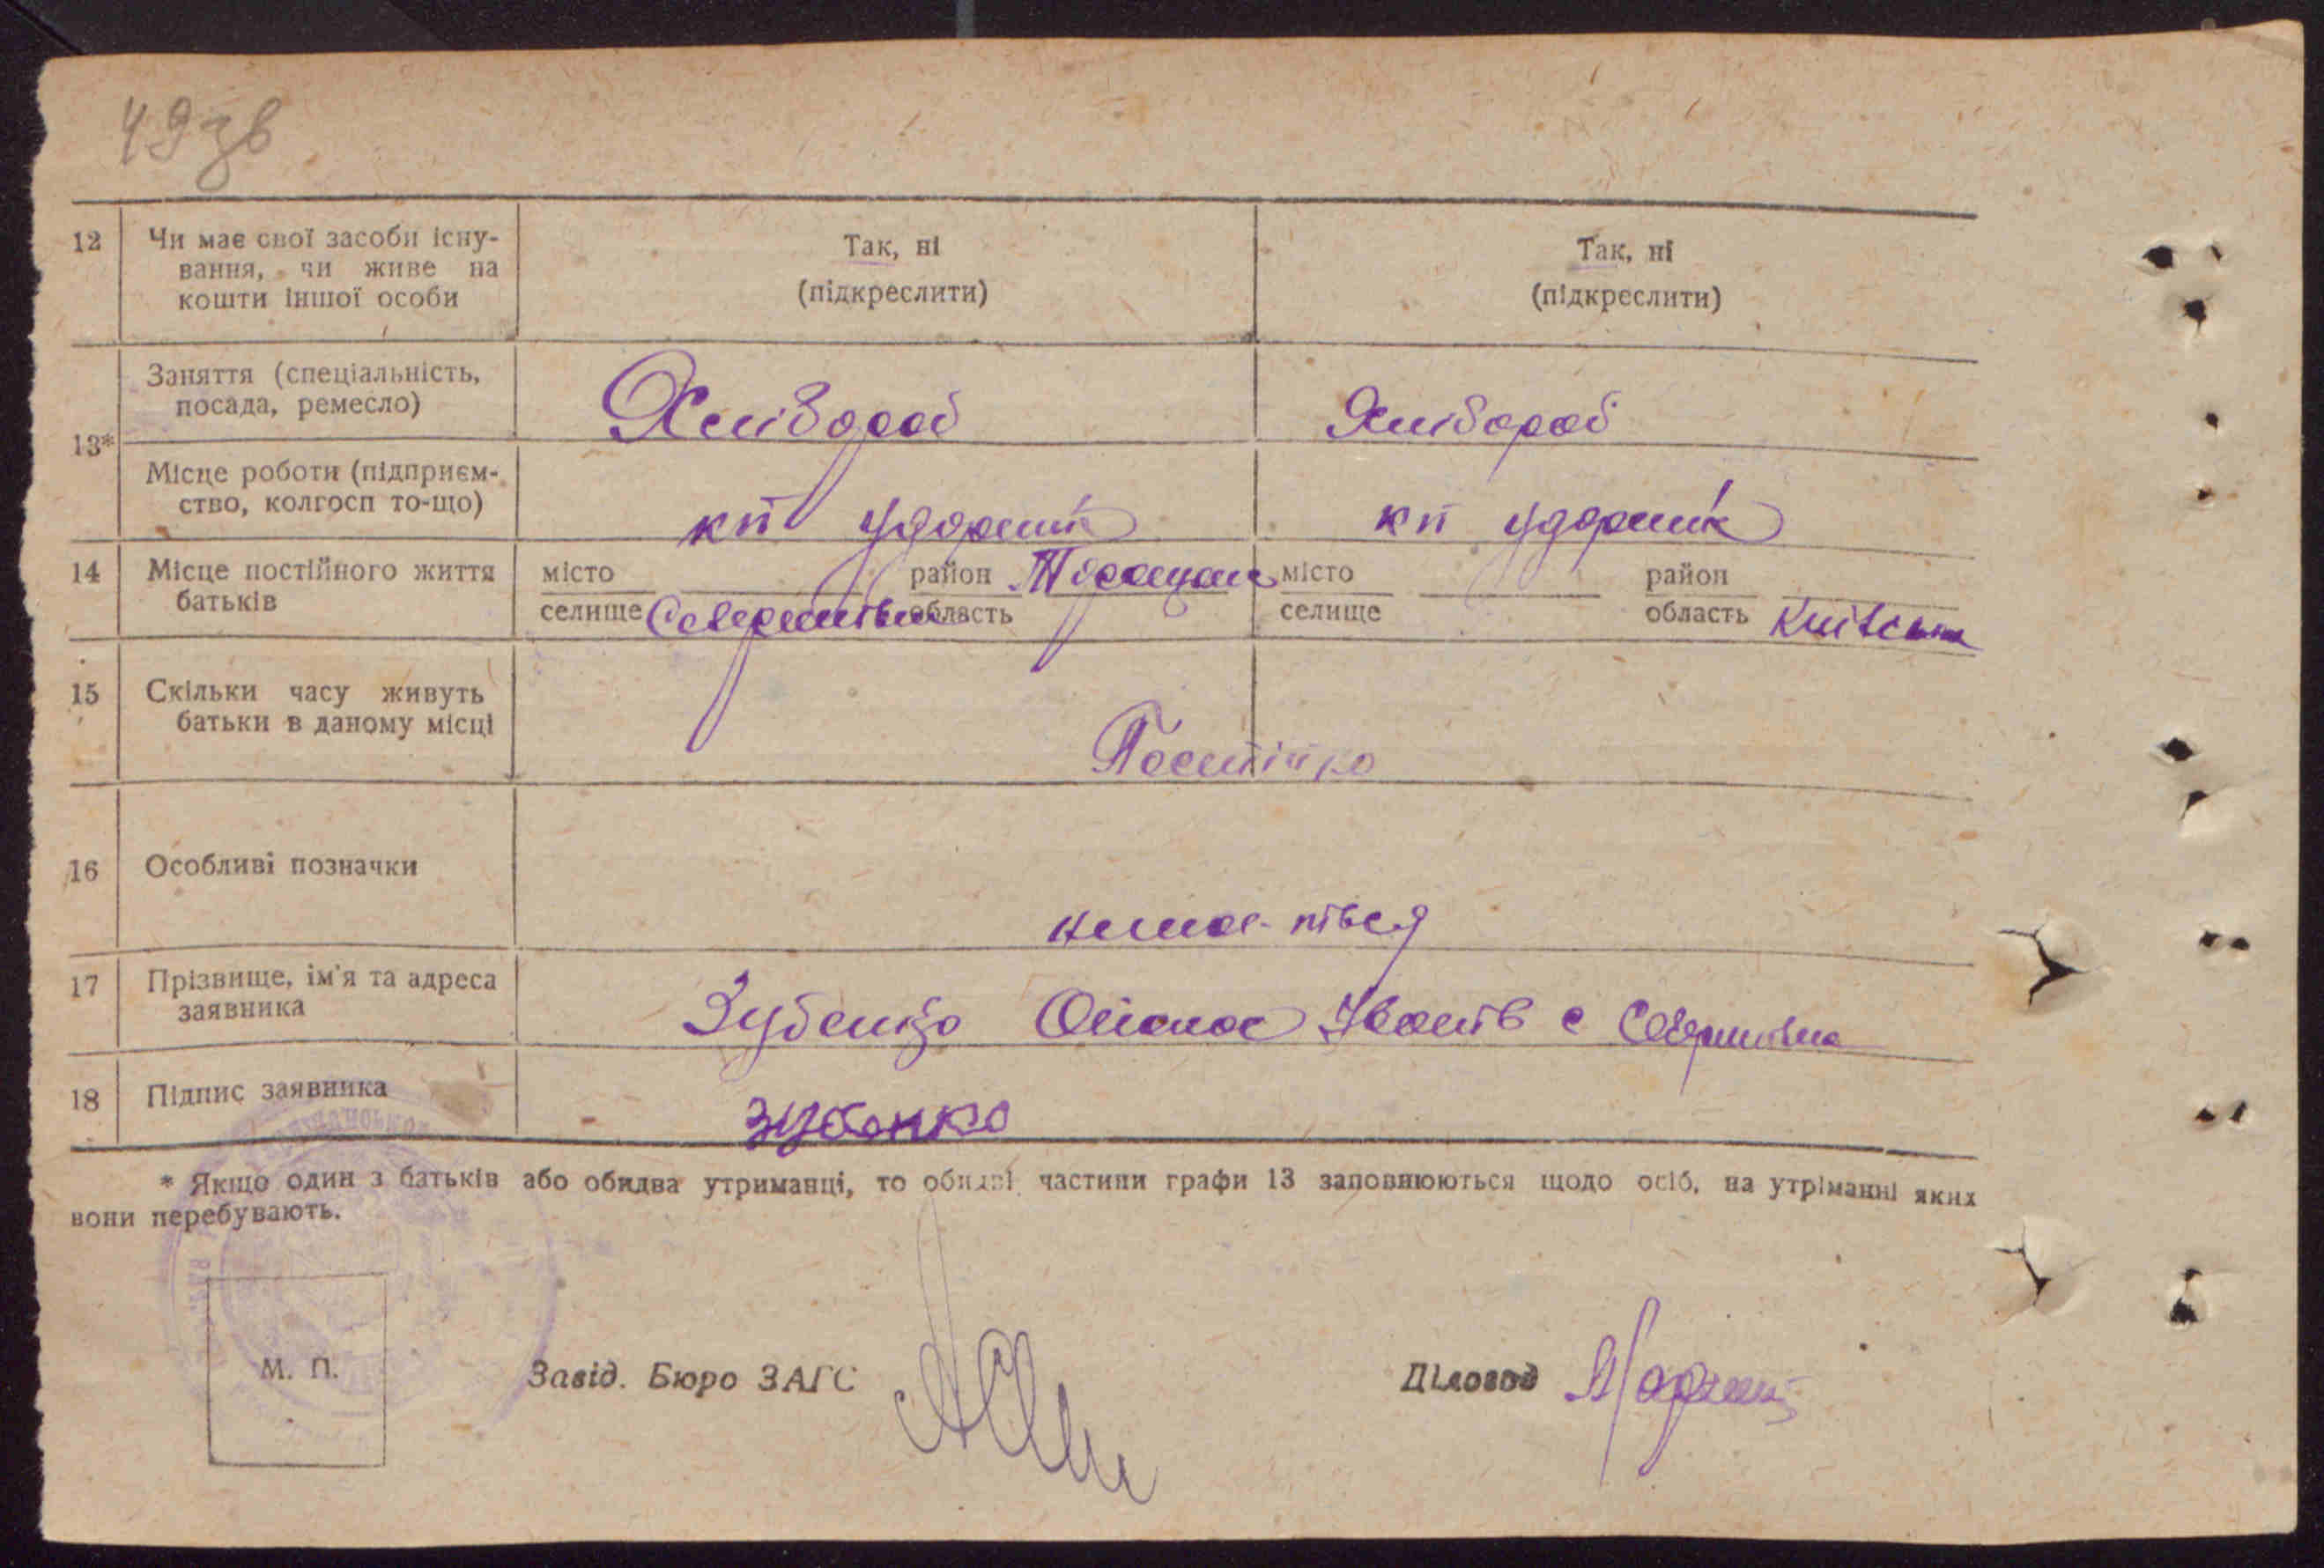 49зв
12 Чи має свої засоби існу- Так, ні Так, ні
вання, чи живе на (підкреслити) (підкреслити)
кошти іншої особи
13* Заняття (спеціальність, Хлібороб Хлібороб
посада, ремесло)
Місце роботи (підприєм-
ство, колгосп то-що) кп ударник кп ударник
14 Місце постійного життя місто район місто район
батьків селище область селище область Київська
15 Скільки часу живуть
батьки в даному місці Постійно
16 Особливі позначки
немає
17 Прізвище, ім'я та адреса
заявника Зубенко с
18 Підпис заявника Зубенко
* Якщо один з батьків або обидва утриманці, то обидві частини графи 13 заповнюються щодо осіб, на утріманні яких
вони перебувають.
М. П. Завід. Бюро ЗАГС Діловод